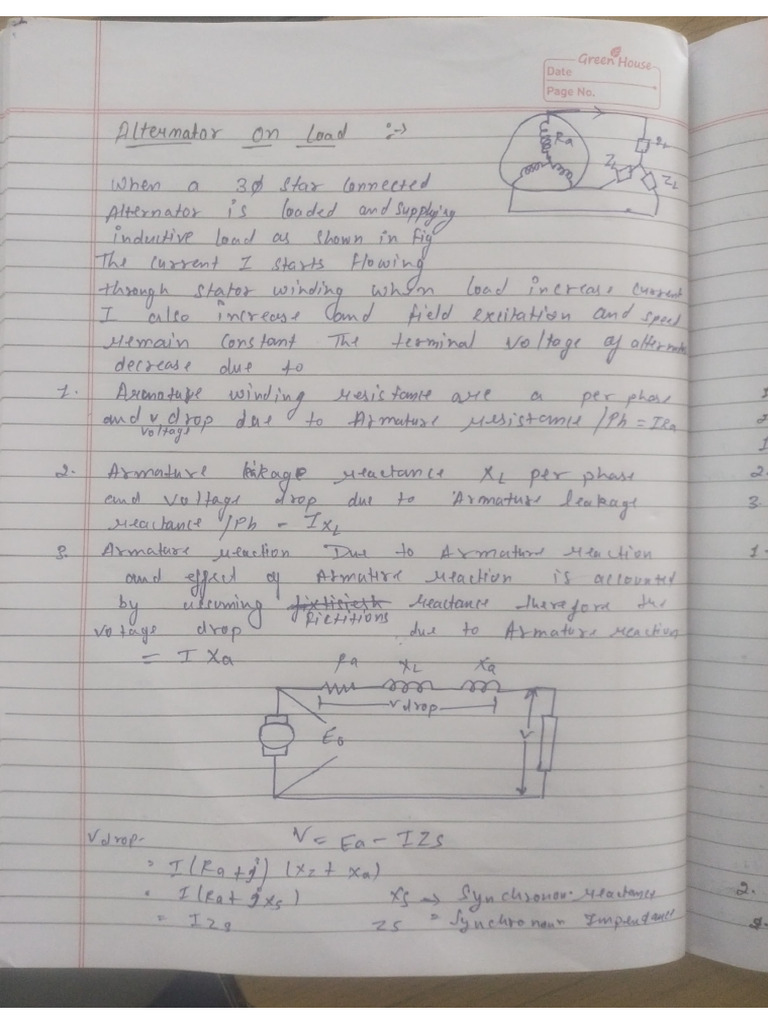 Green House
Date
Page No.
Alternator on Load :->
Ra
ZL
ZL
ZL
When a 3φ star connected
Alternator is loaded and supplying
inductive load as shown in fig
The current I starts flowing
through stator winding when load increase current
I also increase and field excitation and speed
remain constant The terminal voltage of alternator
decrease due to
1. Armature winding resistance are a per phase
and v drop due to Armature resistance /Ph = IRa
voltage
2. Armature leakage reactance XL per phase
and voltage drop due to Armature leakage
reactance /Ph - IXL
3. Armature reaction Due to Armature reaction
and effect of Armature reaction is accounted
by assuming reactance therefore the
fictitions
voltage drop due to Armature reaction
= I Xa
Ra XL Xa
V drop
E0
V
V drop- V = Ea - IZs
= I(Ra + j) (XL + Xa)
= I(Ra + jXs) Xs -> Synchronou- reactance
= IZs ZS = Synchronoun Impendance
1
2
1
2.
3
1-
2.